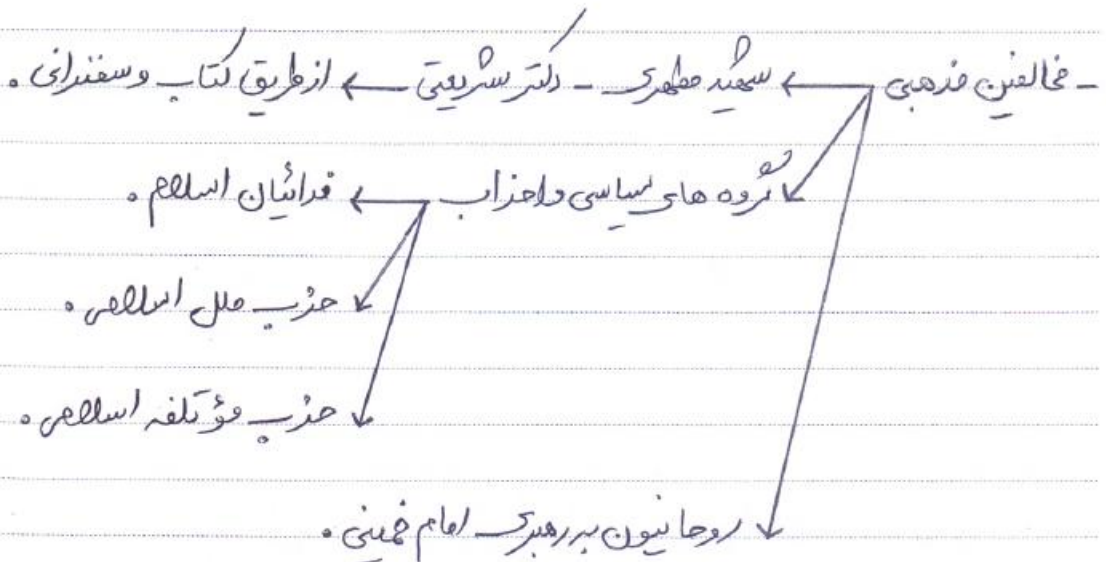 - مخالفین مذهبی ← شهید مطهری - دکتر شریعتی ← از طریق کتاب و سخنرانی .
گروه های سیاسی و احزاب ← فدائیان اسلام .
حزب ملل اسلامی .
حزب مؤتلفه اسلامی .
روحانیون به رهبری امام خمینی .